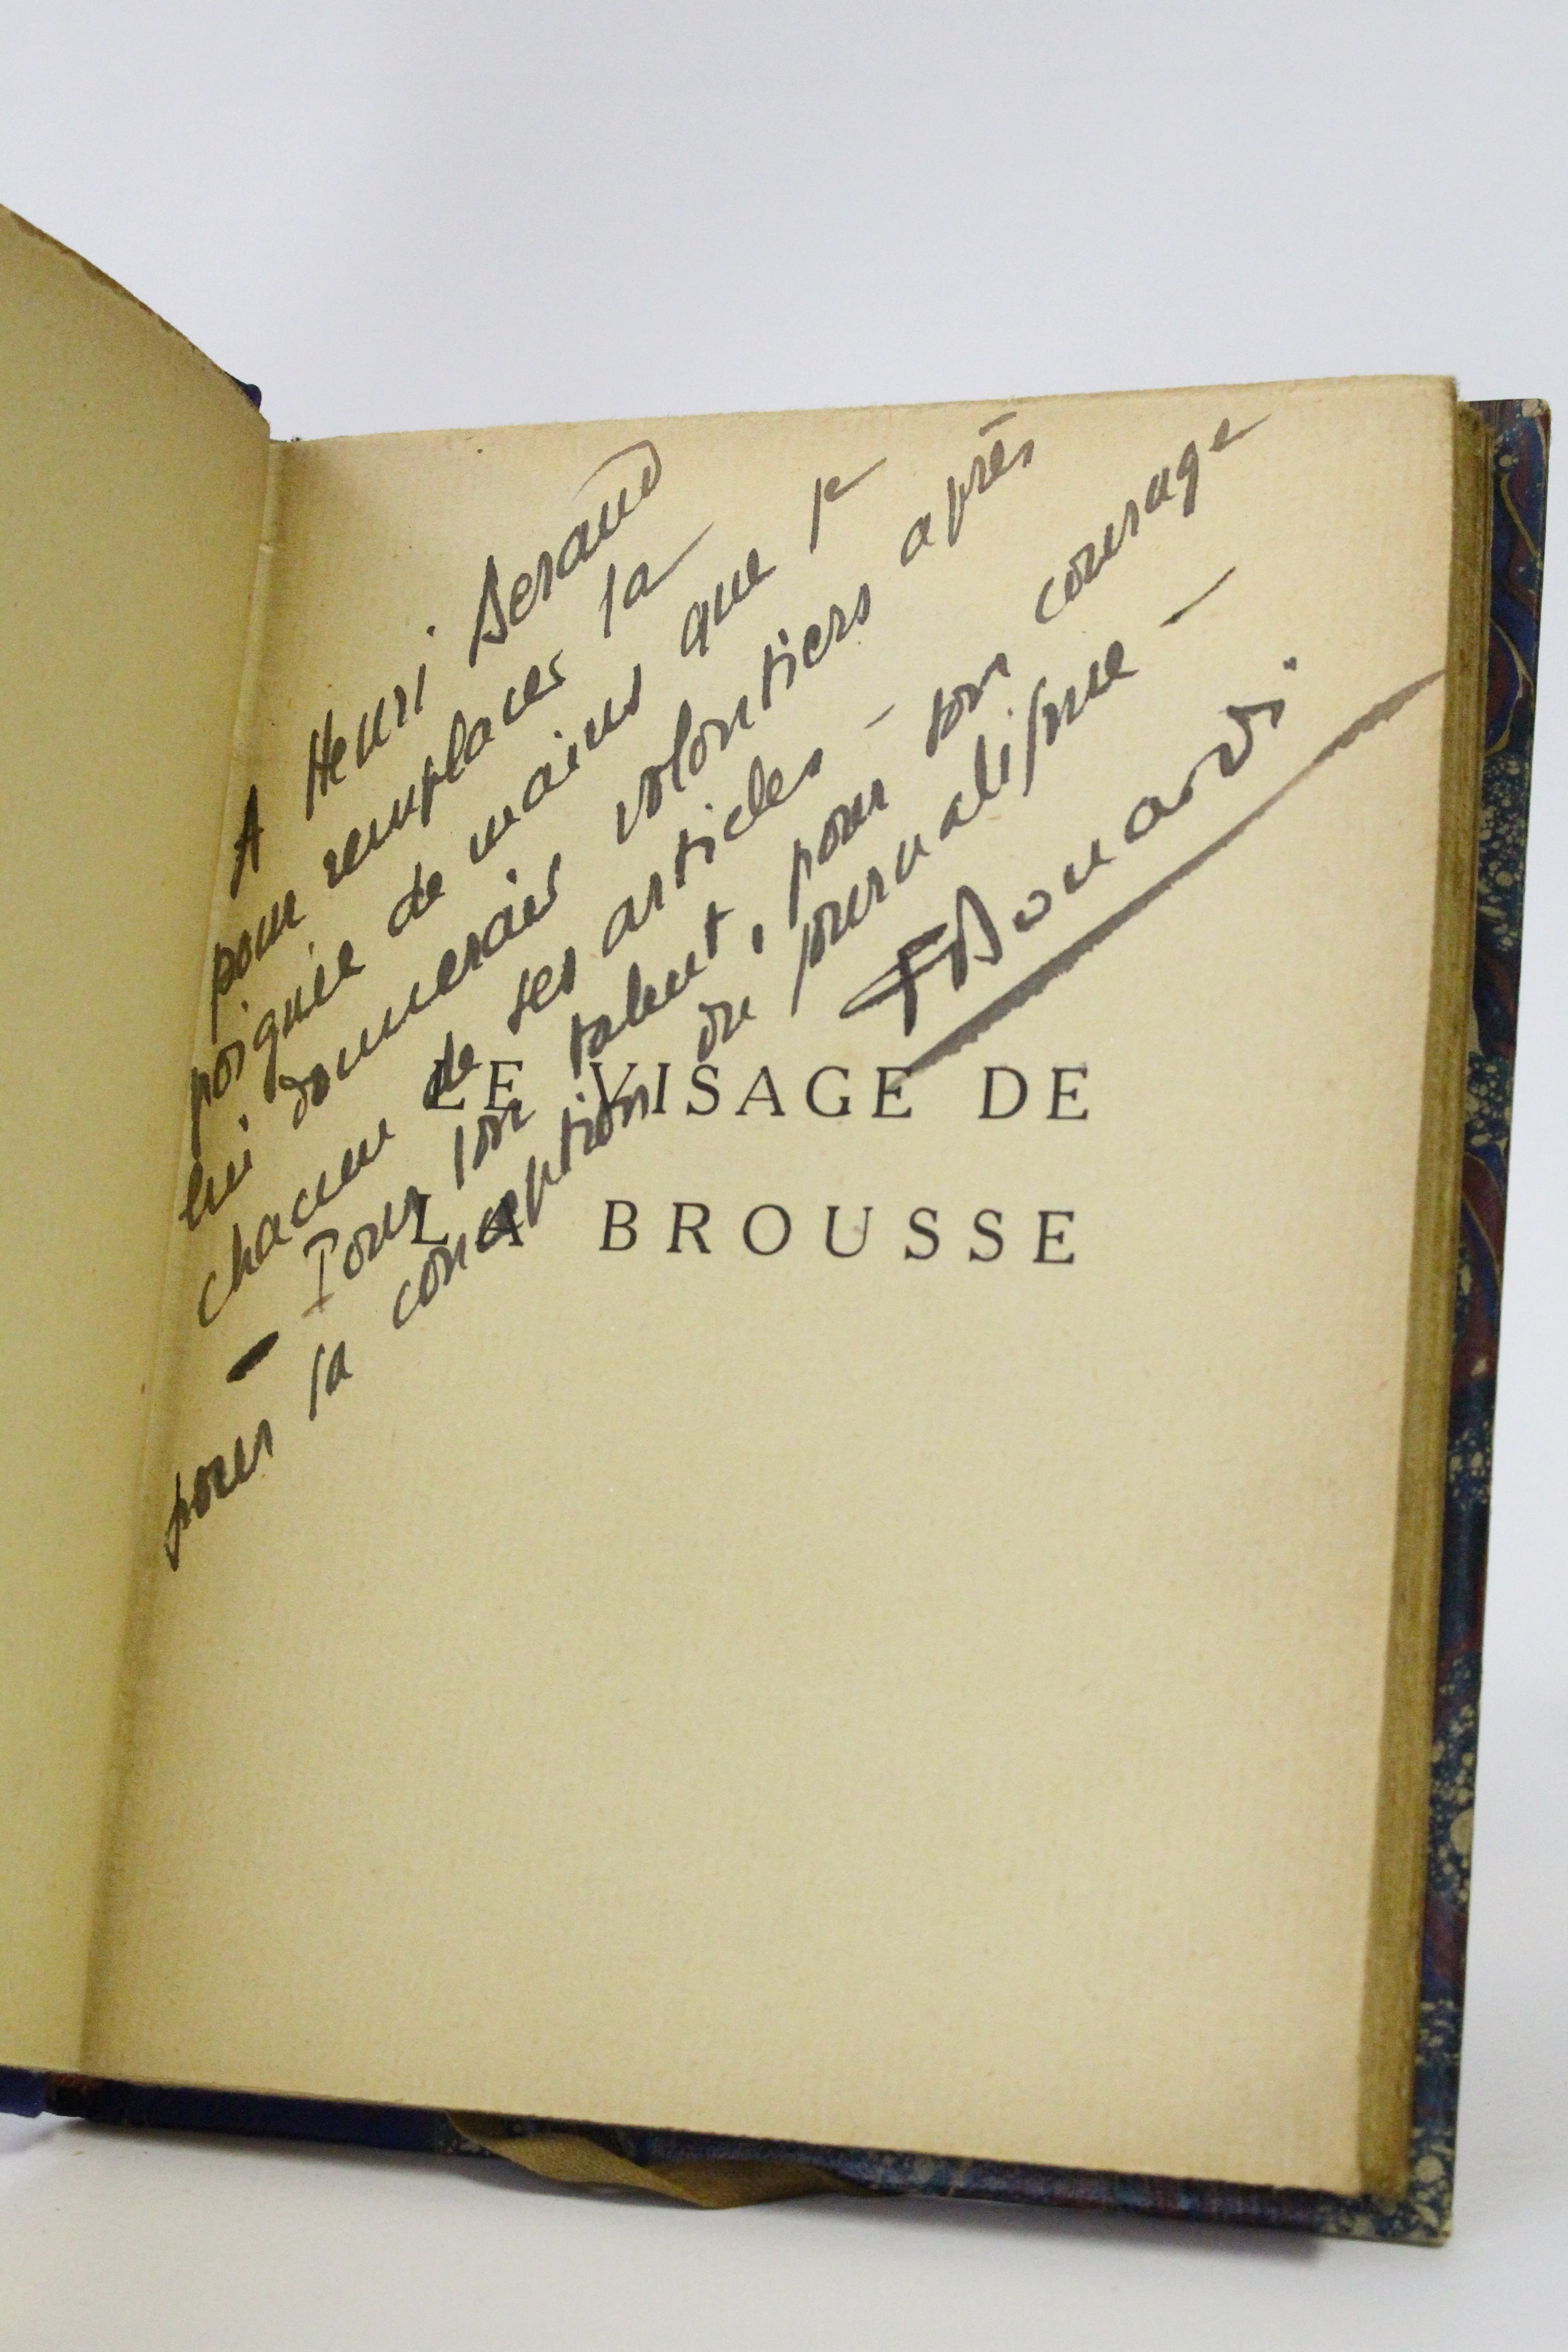 A Henri Beraud
pour remplacer la
poignée de mains que je
lui donnerais volontiers après
chacun de ses articles –
– Pour son talent, pour son courage
pour la conception du journalisme –
F Bonardi
LE VISAGE DE
LA BROUSSE